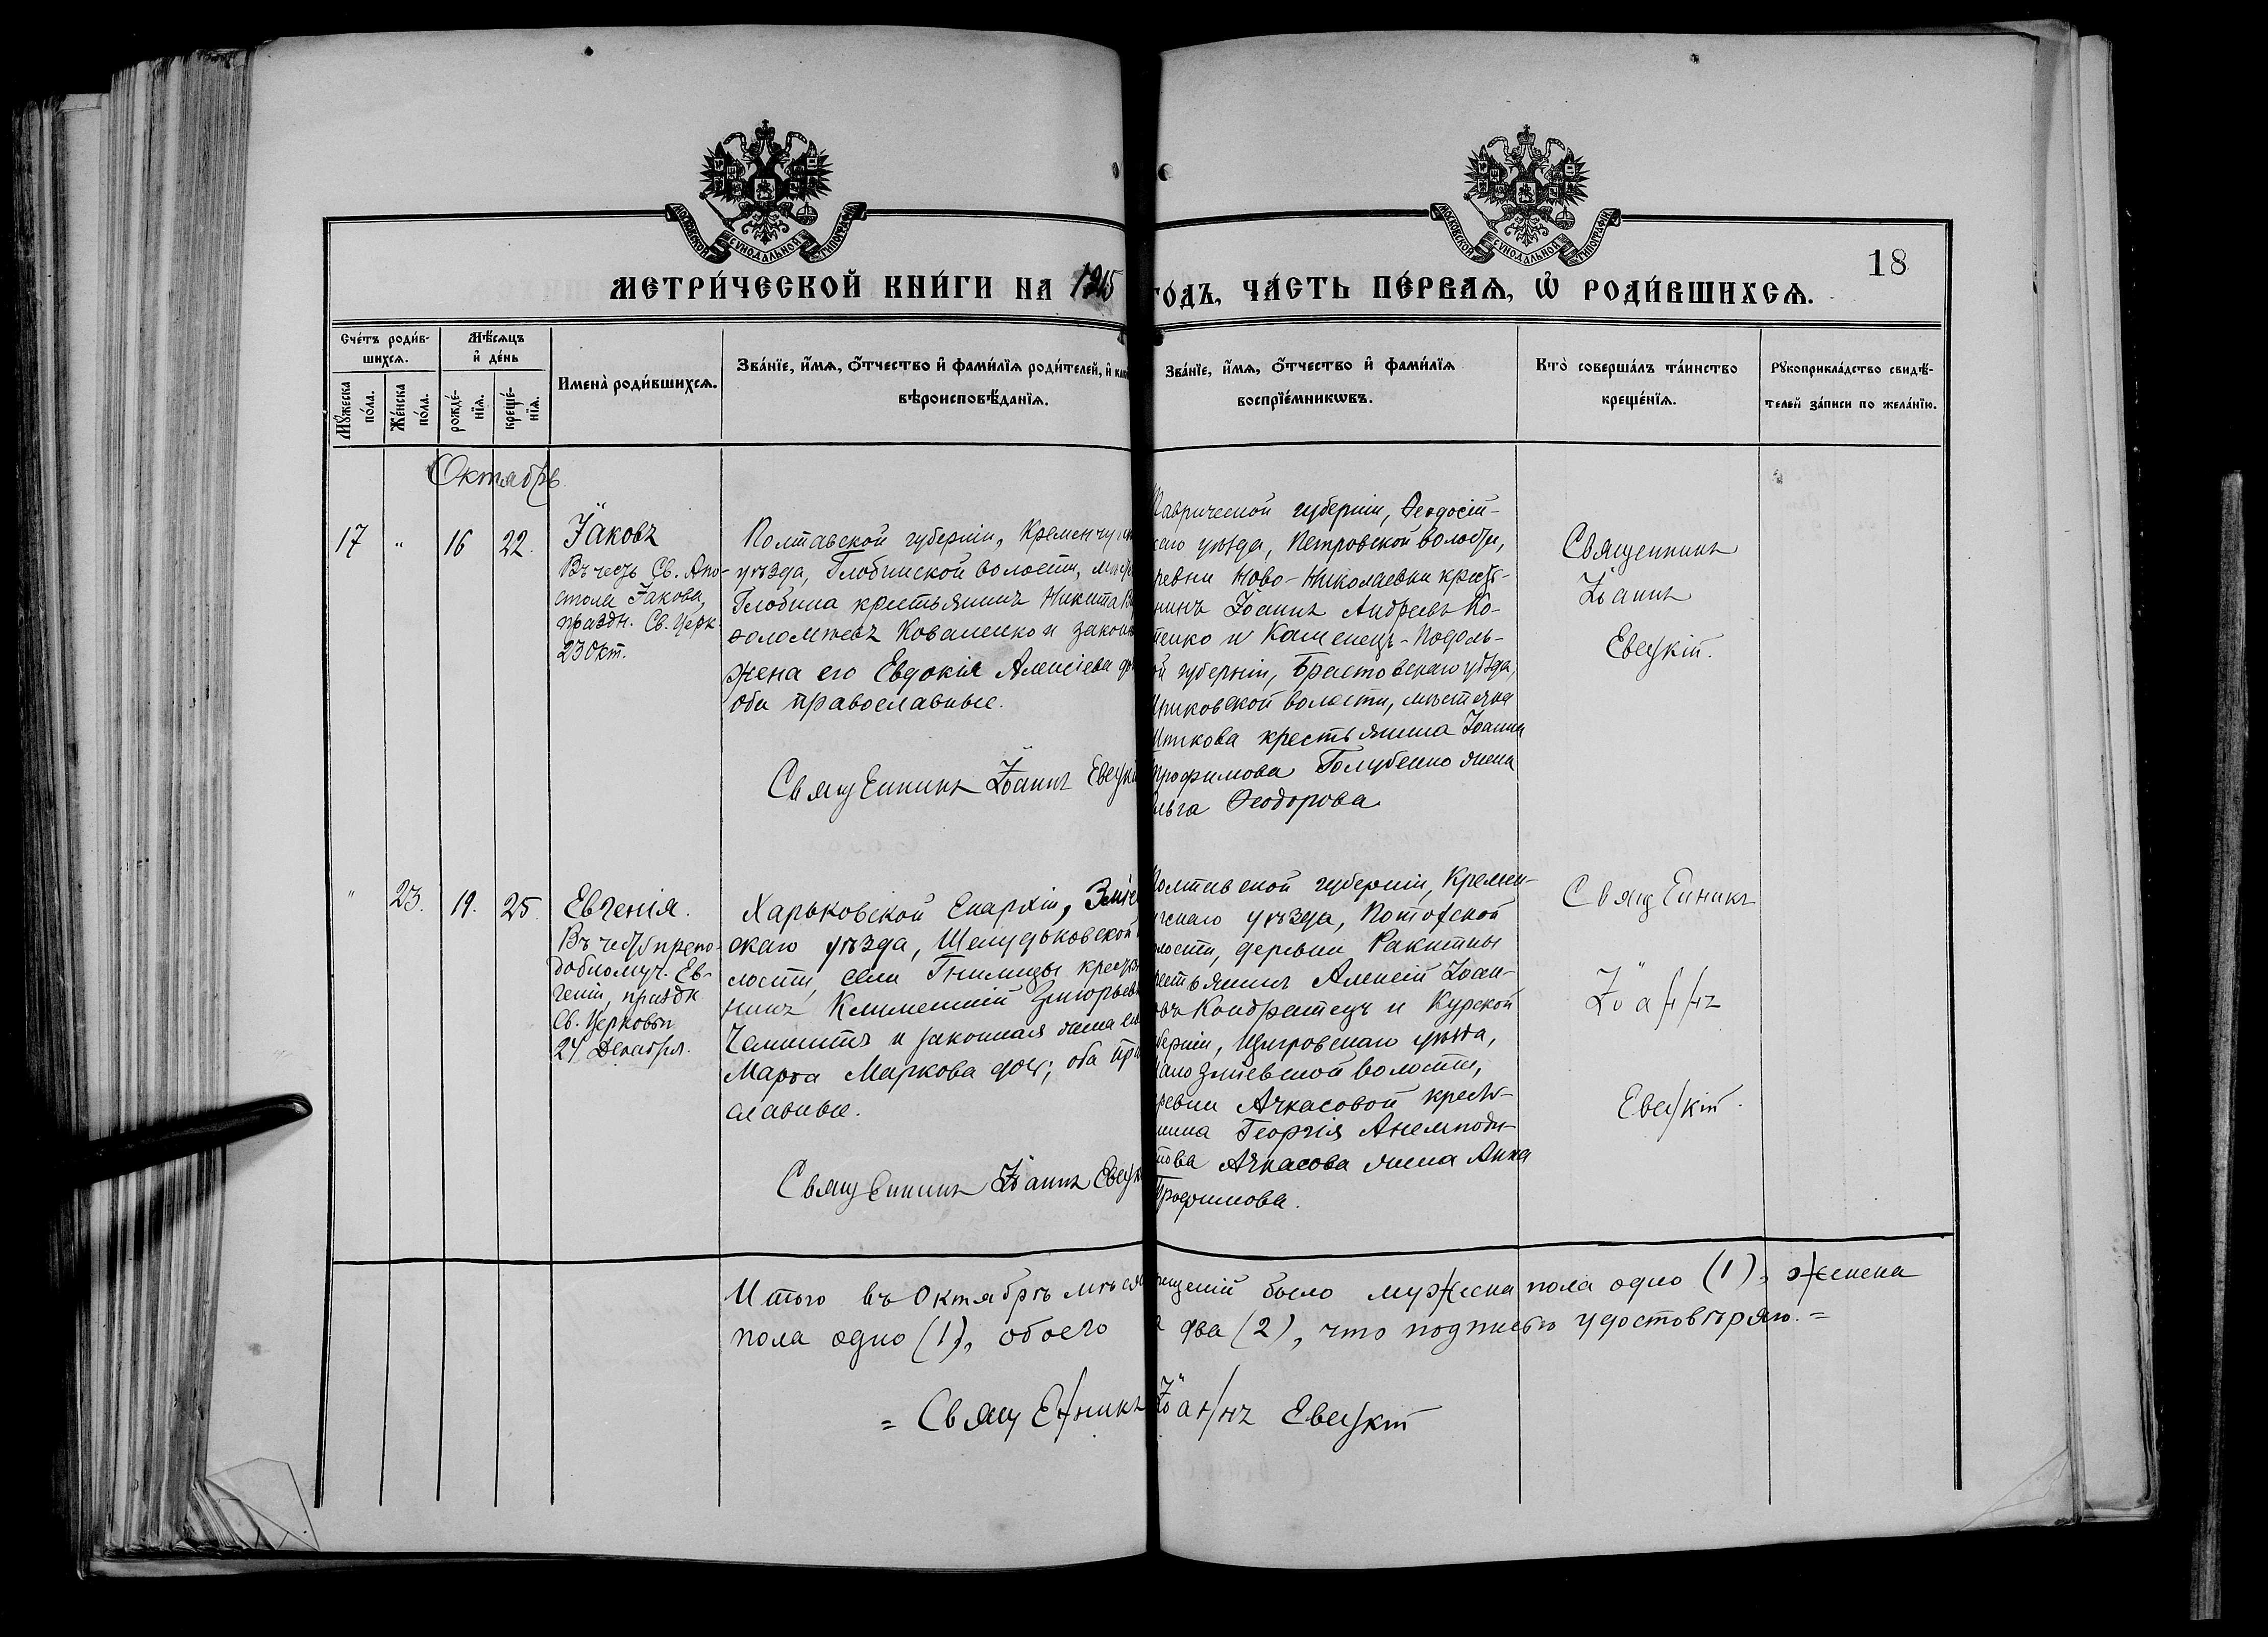 МОСКОВСКОЙ СѴНОДАЛЬНОЙ ТИПОГРАФІИ
МОСКОВСКОЙ СѴНОДАЛЬНОЙ ТИПОГРАФІИ
18
МЕТРИ́ЧЕСКОЙ КНИ́ГИ НА 1915
ГО́ДЪ, ЧА́СТЬ ПЕ́РВАѦ, Ѡ҆ РОДИ́ВШИХСѦ.
Сче́тъ роди́в-
шихсѧ.
Мꙋ́жеска
по́ла.
Же́нска
по́ла.
Мѣ́сѧцъ
и҆ де́нь
рожде́-
нїѧ.
креще́-
нїѧ.
Имена̀ роди́вшихсѧ.
Зва́нїе, и҆́мѧ, ѻ҆́тчество и҆ фами́лїѧ роди́телей, и҆
вѣроисповѣ́данїѧ.
Зва́нїе, и҆́мѧ, ѻ҆́тчество и҆ фами́лїѧ
воспрїе́мникѡвъ.
Кто̀ соверша́лъ та́инство
креще́нїѧ.
Рꙋкоприкла́дство свидѣ́-
телей за́писи по жела́нїю.
Октябрь
17 " 16 22.
Іаковъ
Въ честь Св. Апо-
стола Іакова,
праздн. Св. Церк.
23 Окт.
Полтавской губерніи, Кременчуг
уѣзда, Глобинской волости,
Глобина крестьянинъ Никита
ѳоломѣевъ Коваленко и закон
жена его Евдокія Алексіева
оба православные.
Священникъ Іоаннъ Евецкі
Таврической губерніи, Ѳеодосій-
скаго уѣзда, Петровской волости,
ревни Ново-Николаевки кресть-
нинъ Іоаннъ Андреевъ Ко-
тенко и Каменецъ-Подоль-
ой губерніи,
иковской волости, мѣстечка
крестьянина Іоанна
Трофимова Голубенко жена
льга Ѳеодорова.
Священникъ
Іоаннъ
Евецкій.
" 23. 19. 25.
Евгенія.
Въ честь препо-
добномуч. Ев-
геніи, праздн.
Св. Церковью
24 Декабря.
Харьковской Епархіи, Зміев
скаго уѣзда, Шелудьковской
лости, села Гнилицы кресть
нинъ Климентій Григорьев
и законная жена его
Марѳа Маркова доч; оба пра
славные.
Священникъ Іоаннъ Евецк
Полтавской губерніи, Кремен-
чугскаго уѣзда, Потокской
лости, деревни Ракитны
рестьянинъ Алексій Іоан-
овъ Кондратецъ и Курской
берніи, Щигровскаго уѣзда,
волости,
ревни Ачкасовой кресть-
нина Георгія Анемподи-
това Ачкасова жена Анна
Трофимова.
Священникъ
Іоаннъ
Евецкій.
Итого въ Октябрѣ мѣся рещеній было мужеска пола одно (1), женска
пола одно (1), обоего а два (2), что подписью удостовѣряю.=
= Священникъ Іоаннъ Евецкій